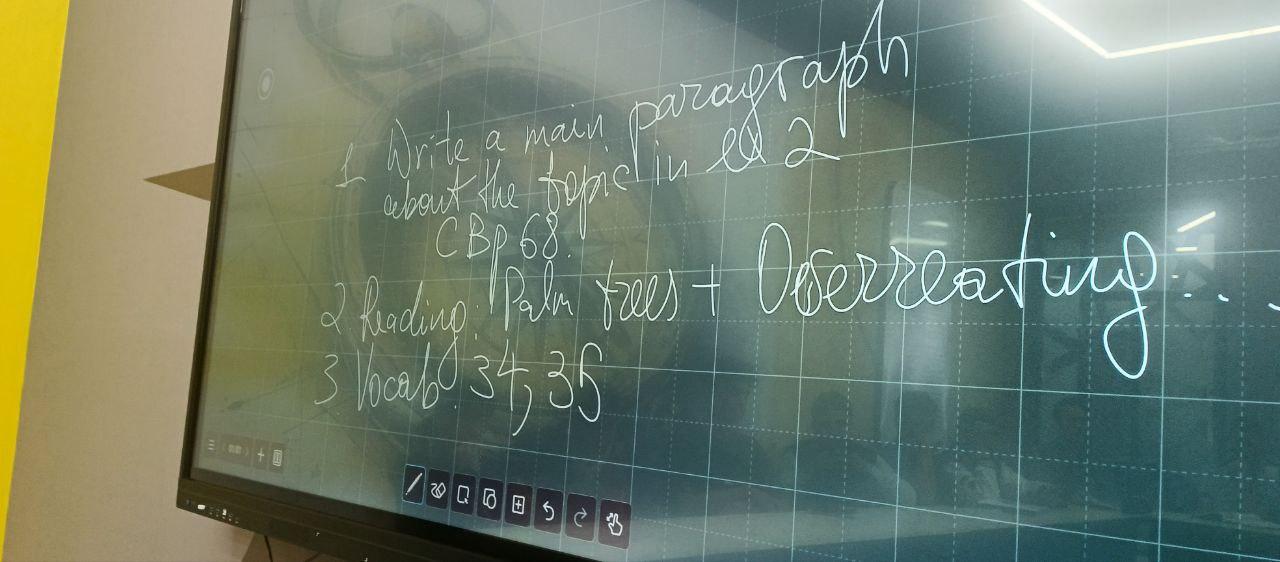 1 Write a main paragraph
about the topic in ex 2
CB p 68.
2 Reading: Palm trees + Overreating...
3 Vocab. 34, 35